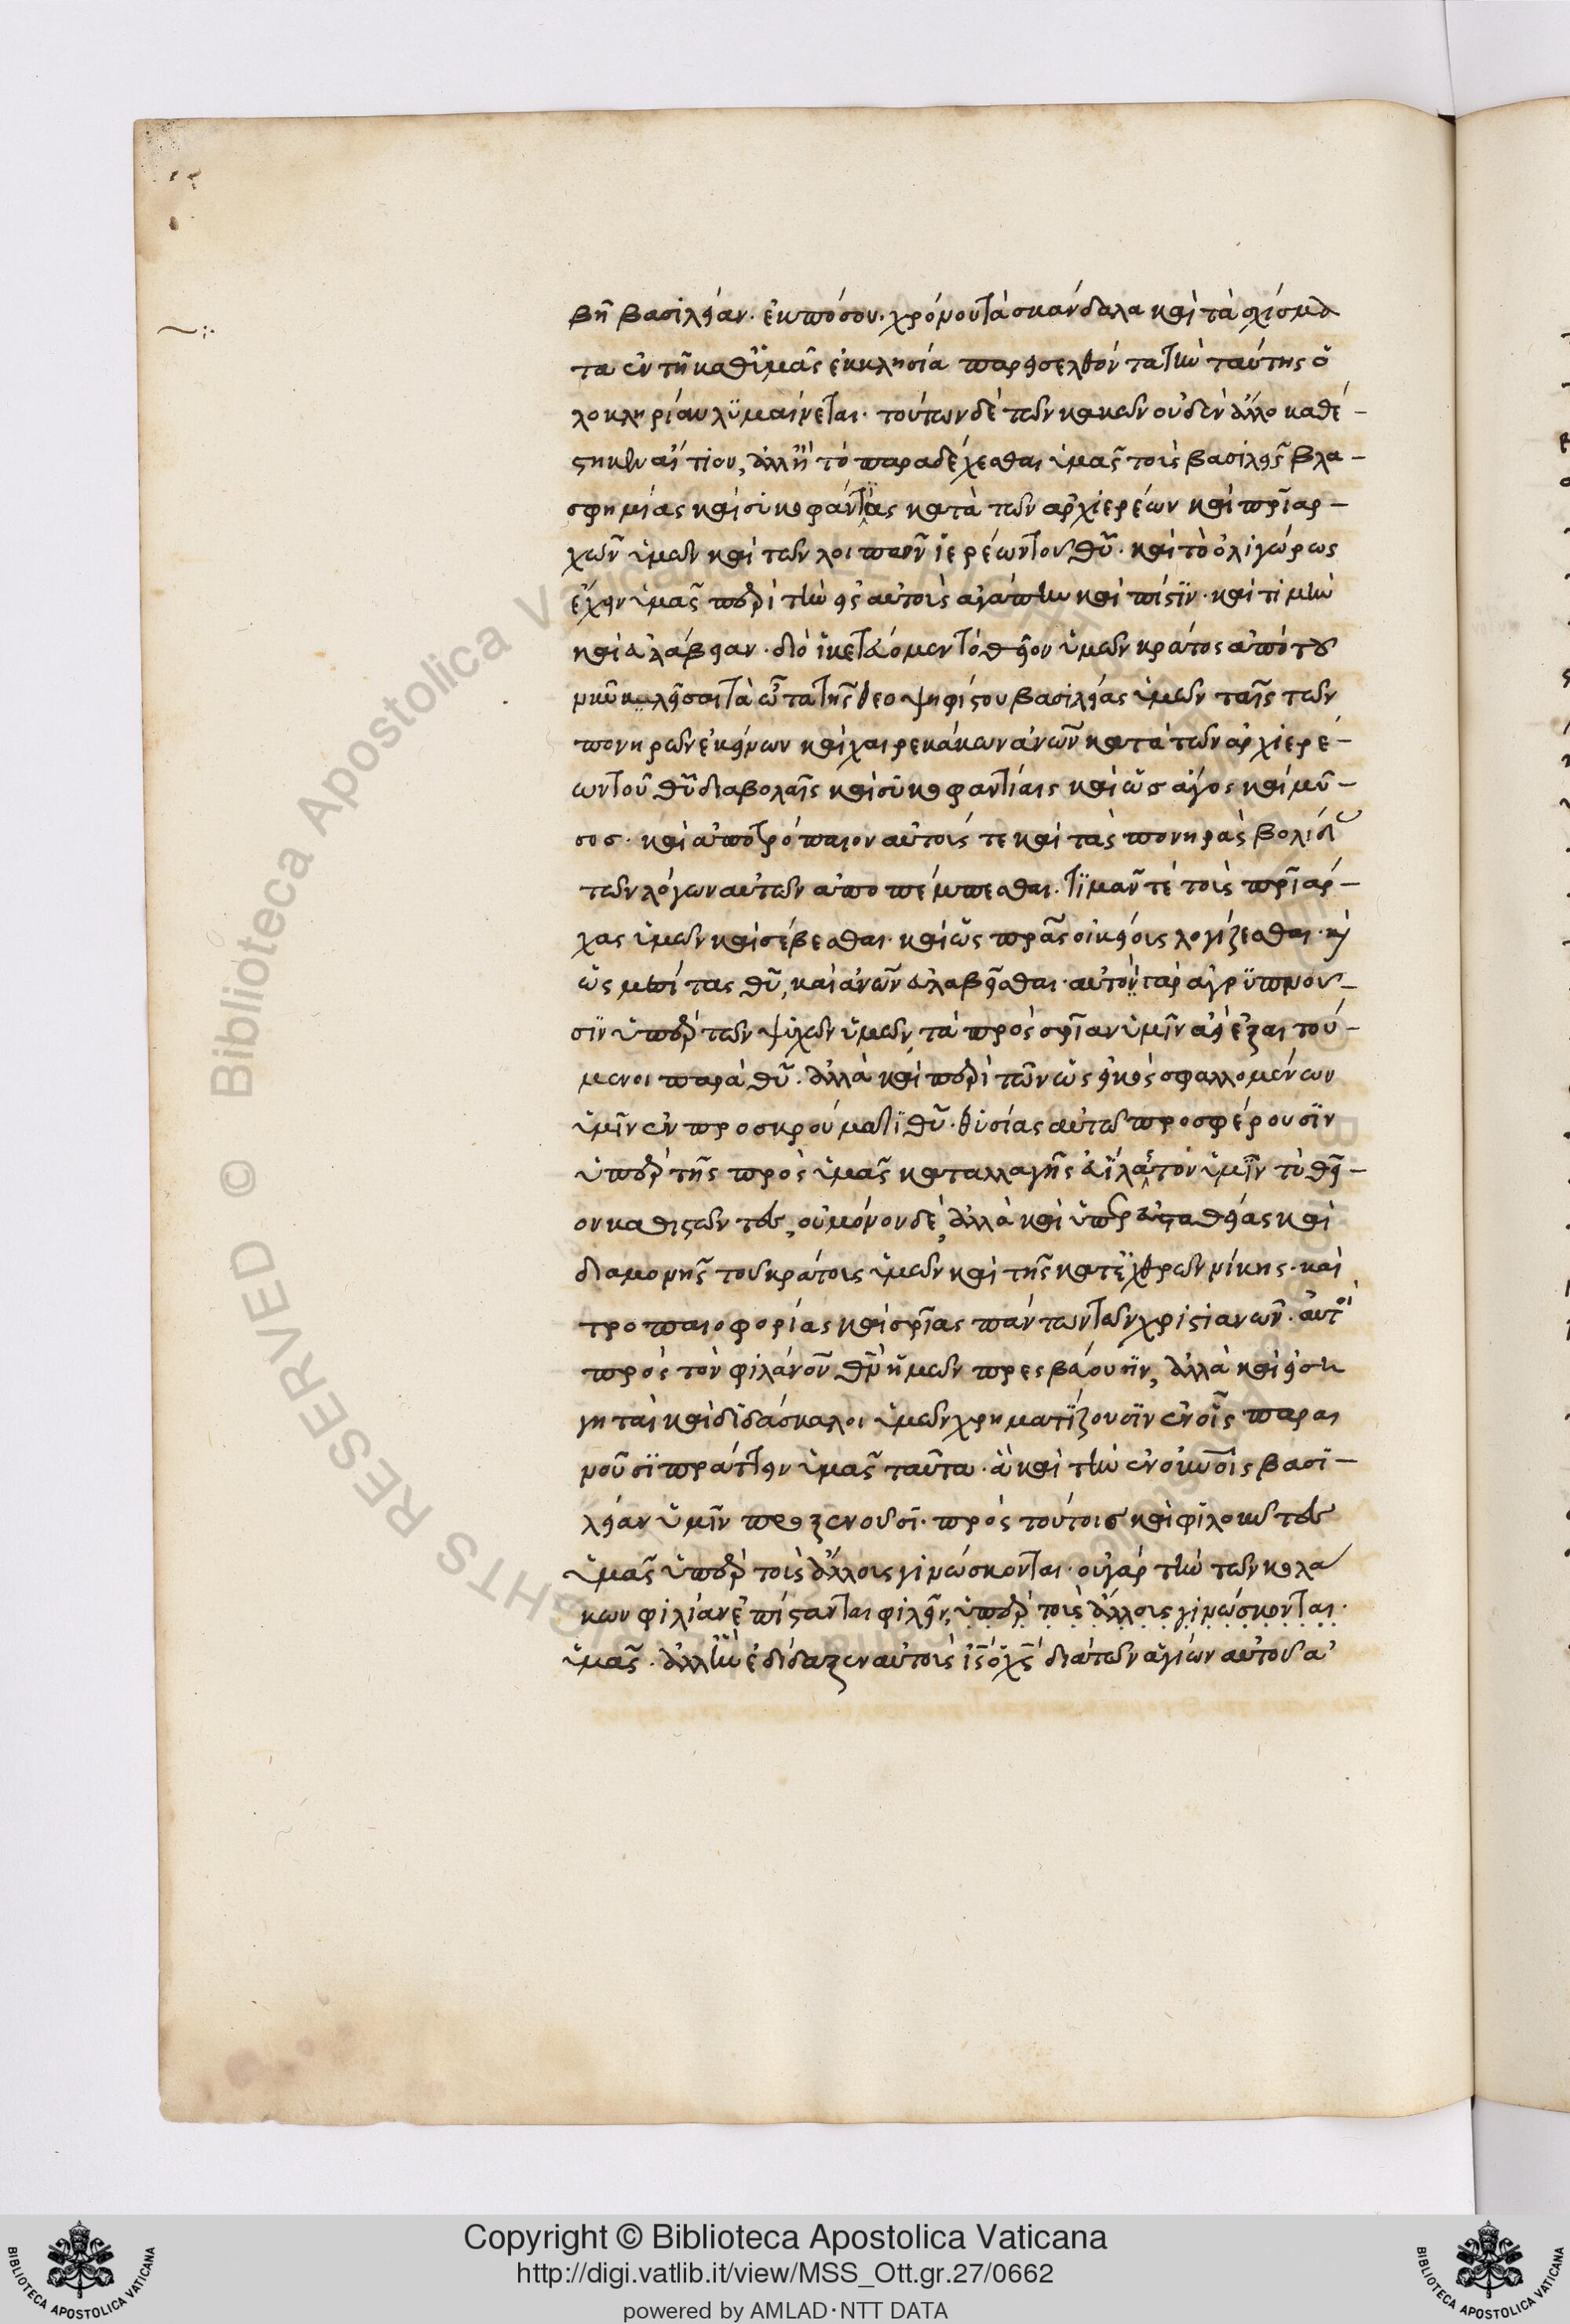 βῆ βασιλείαν· ἐκπόσου· χρόνου τὰ σκάνδαλα καὶ τὰ σχίσμα
τα ἐν τῆ καθ' ἡμᾶς ἐκκλησία παρεισελθόντα τὴν ταύτης ὁ
λοκληρίαν λϋμαίνεται· τούτων δὲ τῶν κακῶν οὐδὲν ἄλλο καθέ-
στηκεν αἴτιον, ἀλλ' ἢ τὸ παραδέχεσθαι ὑμᾶς τοὺς βασιλεῖς βλα-
σφημίας καὶ συκοφαντίας κατὰ τῶν ἀρχιερέων καὶ πρϊαρ-
χῶν ὑμῶν καὶ τῶν λοιπῶν ἱερέων τοῦ θῦ· καὶ τὸ ὀλιγώρως
ἔχειν ὑμᾶς περὶ τὴν εἰς αὐτοὺς ἀγάπην καὶ πίστϊν· καὶ τιμὴν
καὶ εὐλάβειαν· διὸ ἱκετεύομεν τὸ θεῖον ὑμῶν κράτος ἀπὸ τοῦ
νῦν κλεῖσαι τὰ ὦτα τῆς θεοψηφίστου βασιλείας ὑμῶν ταῖς τῶν
πονηρῶν ἐκείνων καὶ χαιρεκάκων ἀνῶν κατὰ τῶν ἀρχιερέ-
ων τοῦ θῦ διαβολαῖς καὶ συκοφαντίαις καὶ ὡς ἄγος καὶ μῦ-
σος· καὶ ἀποτρόπαιον αὐτούς τε καὶ τὰς πονηρὰς βολίδ
τῶν λόγων αὐτῶν ἀποπέμπεσθαι· τϊμᾶν τὲ τοὺς πρϊάρ-
χας ὑμῶν καὶ σέβεσθαι· καὶ ὡς πρᾶς οἰκείους λογίζεσθαι· κ
ὡς μεσίτας θῦ, καὶ ἀνῶν εὐλαβεῖσθαι· αὐτοὶ γὰρ ἀγρϋπνοῦ-
σϊν ὑπὲρ τῶν ψυχῶν ὑμῶν, τὰ πρὸς σρϊαν ὑμῖν ἀεὶ ἐξαιτού-
μενοι παρὰ θῦ· ἀλλὰ καὶ περὶ τῶν ὡς εἰκὸς σφαλλομένων
ὑμῖν ἐν προσκρούματϊ θῦ· θυσίας αὐτῶ προσφέρουσϊν
ὑπὲρ τῆς πρὸς ὑμᾶς καταλλαγῆς εὐΐλατον ὑμῖν τὸ θεῖ-
ον καθιστῶντες, οὐ μόνον δὲ, ἀλλὰ καὶ ὑπὲρ εὐσταθείας καὶ
διαμονῆς τοῦ κράτους ὑμῶν καὶ τῆς κατ' ἐχθρῶν νίκης· καὶ
τροπαιοφορίας καὶ σρϊας πάντων τῶν χριστιανῶν· αὐτοὶ
πρὸς τὸν φιλάνον θν ἡμῶν πρεσβεύουσϊν, ἀλλὰ καὶ εἰση
γηταὶ καὶ διδάσκαλοι ὑμῶν χρηματΐζουσϊν ἐν οἷς παραι
νοῦσϊ πράττειν ὑμᾶς ταῦτα· ἃ καὶ τὴν ἐν οὐνοῖς βασϊ-
λείαν ὑμῖν προξενοῦσϊ· πρὸς τούτοις καὶ φιλοῦντες
ὑμᾶς ὑπὲρ τοὺς ἄλλους γινώσκονται· οὐ γὰρ τὴν τῶν κολά
κων φιλίαν ἐπίστανται φιλεῖν, ὑπὲρ τοὺς ἄλλους γινώσκονται·
ὑμᾶς· ἀλλ' ἣν ἐδίδαξεν αὐτοὺς ἰς ὁ χς διὰ τῶν ἁγίων αὐτοῦ ἀ
Copyright © Biblioteca Apostolica Vaticana
http://digi.vatlib.it/view/MSS_Ott.gr.27/0662
powered by AMLAD·NTT DATA